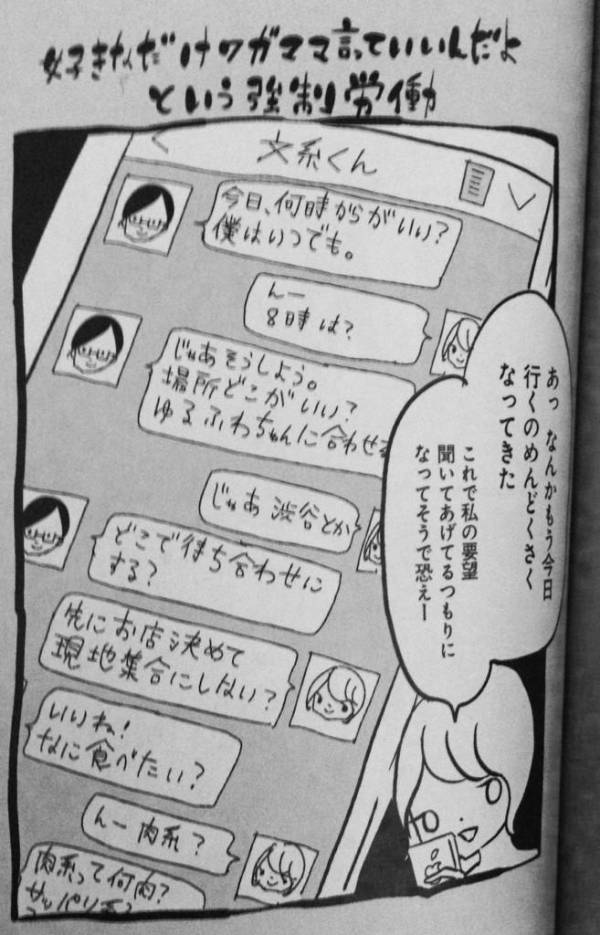 好きなだけワガママ言っていいんだよ
という強制労働
文系くん
今日、何時からがいい?
僕はいつでも。
んー
8時は?
じゃあそうしよう。
場所どこがいい?
ゆるふわちゃんに合わせる
じゃあ 渋谷とか
どこで待ち合わせに
する?
先にお店決めて
現地集合にしない?
いいね!
なに食べたい?
んー肉系?
肉系って何肉?
サッパリ系?
あっ なんかもう今日
行くのめんどくさく
なってきた
これで私の要望
聞いてあげてるつもりに
なってそうで恐えー